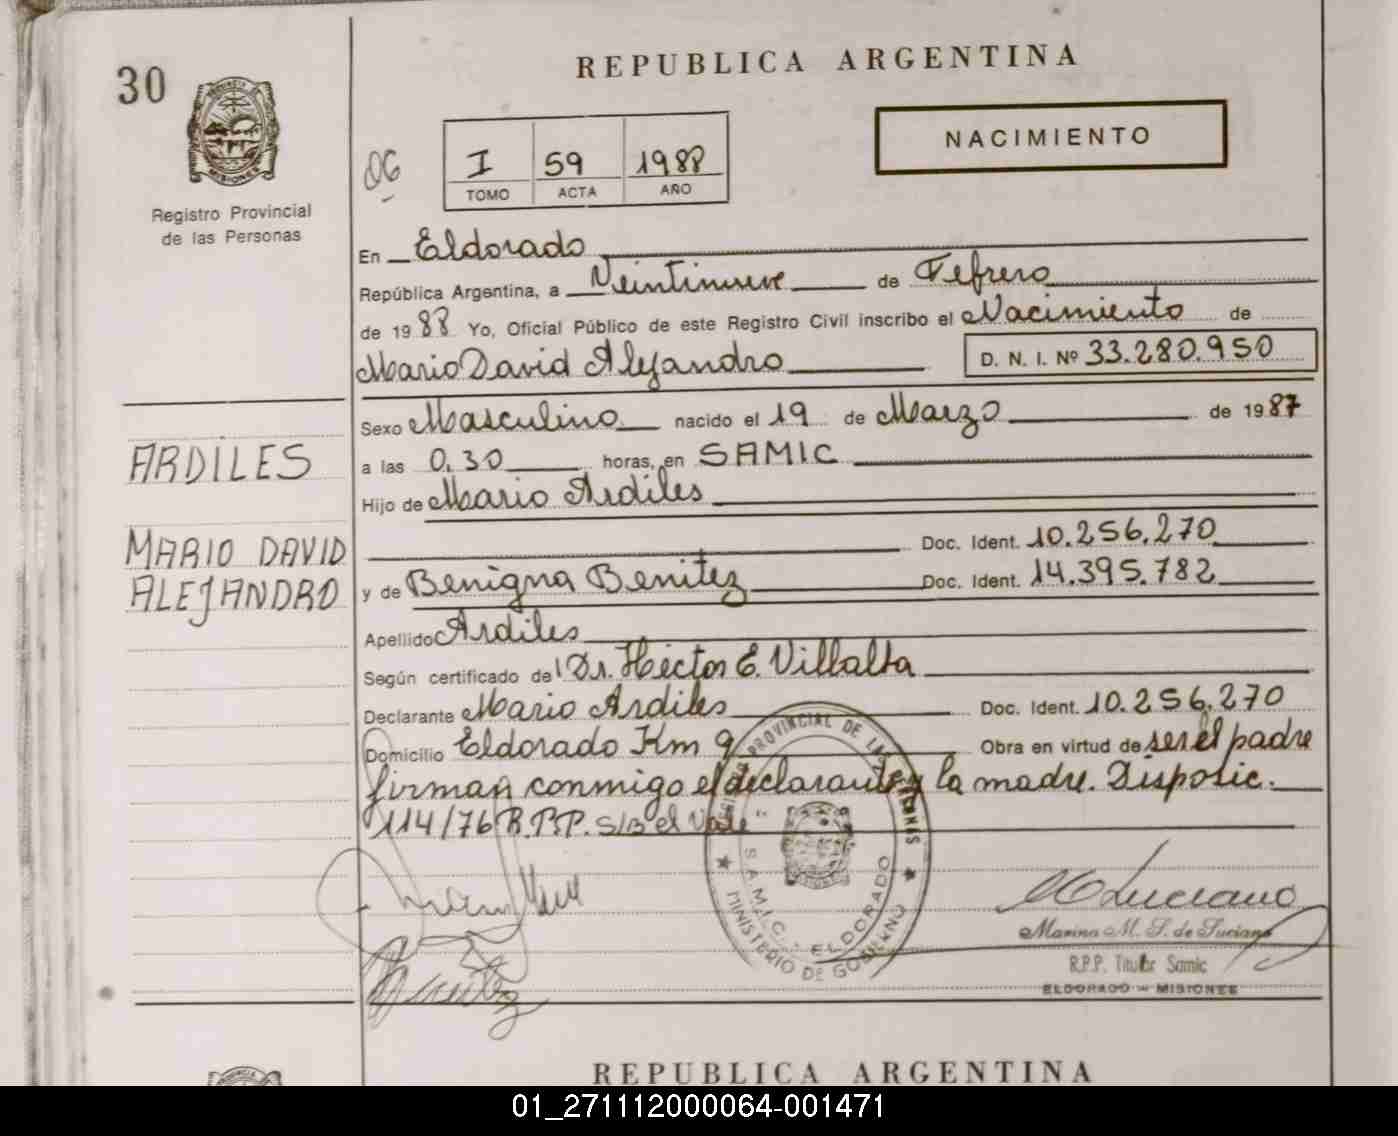 30
REPUBLICA ARGENTINA
PROVINCIA DE MISIONES
Registro Provincial
de las Personas
06
I 59 1988
TOMO ACTA AÑO
NACIMIENTO
En Eldorado
República Argentina, a Veintinueve de Febrero
de 1988 Yo, Oficial Público de este Registro Civil inscribo el Nacimiento de
Mario David Alejandro D. N. I. Nº 33.280.950
Sexo Masculino nacido el 19 de Marzo de 1987
ARDILES
a las 0,30 horas, en SAMIC
Hijo de Mario Ardiles
Doc. Ident. 10.256.270
MARIO DAVID
ALEJANDRO
y de Benigna Benitez Doc. Ident. 14.395.782
Apellido Ardiles
Según certificado del Dr. Héctor E. Villalba
Declarante Mario Ardiles Doc. Ident. 10.256.270
Domicilio Eldorado Km 9 Obra en virtud de ser el padre
firman conmigo el declarante y la madre. Disposic.
114/76 R.P.P. S/B el Vale
PROVINCIAL DE LAS PERSONAS
S.A.M.I.C. - ELDORADO
MINISTERIO DE GOBIERNO
Luciano
Marina M. S. de Luciano
R.P.P. Titular Samic
ELDORADO - MISIONES
REPUBLICA ARGENTINA
01_271112000064-001471